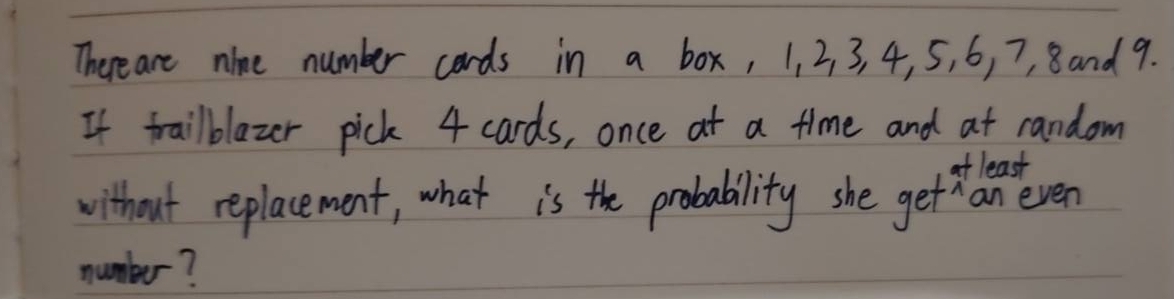 There are nine number cards in a box, 1, 2, 3, 4, 5, 6, 7, 8 and 9.
If trailblazer pick 4 cards, once at a time and at random
without replacement, what is the probability she get ^at least an even
number?